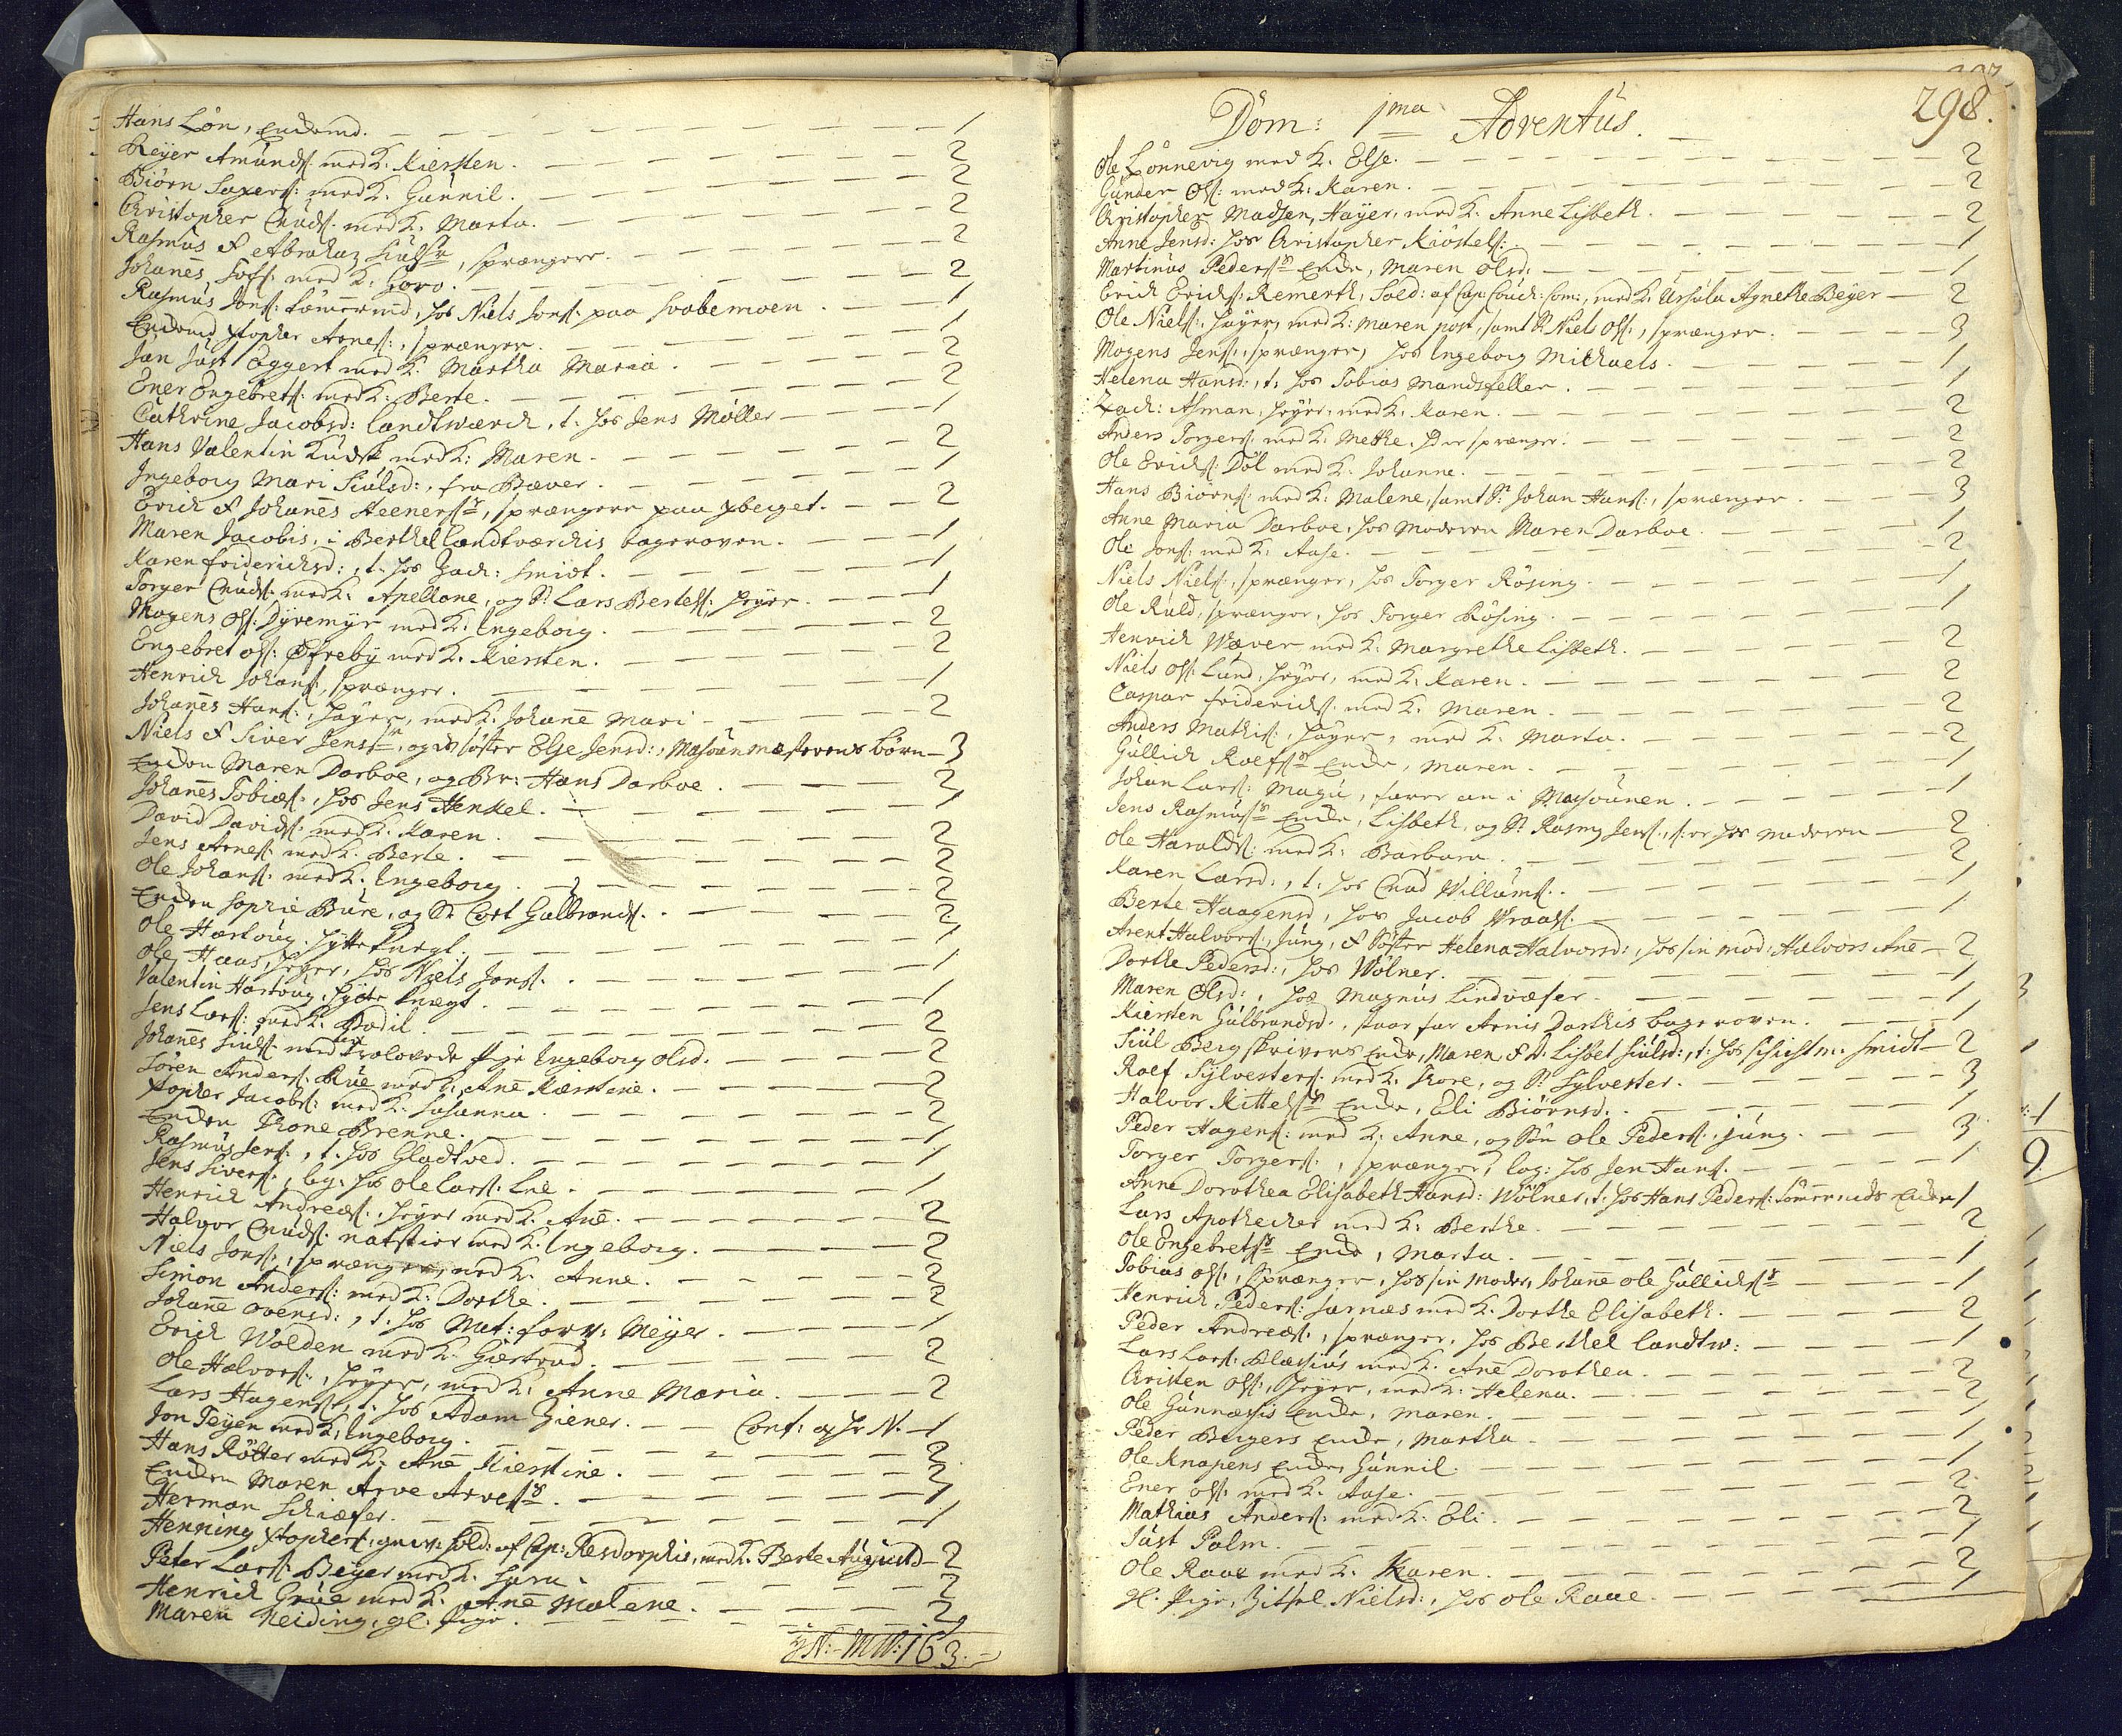 Hans Lön, Enckemd. 1
Reÿer Amunds. med K. Kiersten. 2
Biörn Saxers: med K. Gunnil. 2
Christopher Cnuds. med K. Marta. 2
Rasmus & Abraham Siulsr, sprængere. 2
Johanes Sofs: med K. Goro. 2
Rasmus Jons: tömermd, hos Niels Jons: paa Svabemoen. 1
Enckemd Xtopher Arnes:, sprænger. 1
Jan Just Eggert med K. Martha Maria. 2
Ener Engebrets: med K: Berte. 2
Cathrine Jacobsd: Landtværck, t. hos Jens Möller 1
Hans Valentin Kudsk med K: Maren. 2
Ingeborg Mari Siulsd:, fra Bæver. 1
Erich & Johanes Steenersr, sprængere paa xberget. 2
Maren Jacobis, i Berthel Landtværckis bageroven. 1
Karen Friderichsd:, t. hos Zach: Smidt. 1
Torger Cnuds: med K: Apellone, og S. Lars Bertels:, hÿer. 1
Mogens Ols: Dÿremÿr med K: Ingeborg. 2
Engebret Ols: Öfrebÿ med K. Kiersten. 2
Henrich Johans:, sprænger. 1
Johanes Hans:, hayer, med K: Johane Mari 2
Niels & Siver Jenssr, og d söster Else Jensd:, Masovnmesterens börn 3
Encken Maren Darboe, og Br: Hans Darboe. 2
Johanes Tobies:, hos Jens Henkel. 1
David Davids: med K. Karen. 2
Jens Arnes: med K. Berte. 2
Ole Johans: med K. Ingeborg. 2
Encken Sophie Bure, og S. Cort Gulbrands. 2
Ole Hartoug, hÿtteknegt. 1
Ole Haas, hÿer, hos Niels Jons. 1
Valentin Hartoug, hÿtteknegt. 1
Jens Lars: med K: Bodil. 2
Johanes Siuls: med trolovede pige Ingeborg Olsd. 2
Sören Anders: Rüe med K: Ane Kierstine. 2
Xtopher Jacobs: med K. Susanna. 2
Encken Thone Brenne. 1
Rasmus Jens:, t. hos Gladtved. 1
Jens Sivers:, log: hos Ole Lars: Lie. 1
Henrich Andreæs:, hÿer med K. Ane. 2
Halvor Cnuds: natstier med K. Ingeborg. 2
Niels Jons:, sprænger, med K. Anne. 2
Simon Anders: med K: Dorthe. 2
Johane Ovensd:, t. hos Mat: forv: Meÿer. 1
Erich Wolden med K: Giertrud. 2
Ole Halvors:, hÿer, med K: Anne Maria. 2
Lars Hagens:, t. hos Adam Ziener. Conf: af Hr N. 1
Jon Teÿen med K: Ingeborg. 2
Hans Rötter med K: Ane Kierstine. 2
Encken Maren Arve Arvess. 1
Herman Schiæfer. 1
Henning Xtophers:, gew: Sold: af Cap: Resdorphis, med K. Berte Augustd 2
Peter Lars: Beÿer med K. Sara. 2
Henrich Grüe med K. Ane Malene. 2
Maren Neiding, gl. pige. 1
163.
298.
Dom: 1ma Adventus.
Ole Lönnevig med K. Else. 2
Gunder Ols: med K: Karen. 2
Christopher Madsen, Hayer, med K. Anne Lisbeth. 2
Anne Jensd: hos Christopher Kiöstels: 1
Martinus Peders Encke, Maren Olsd. 1
Erich Erichs: Remerth, Sold: af Cap: Couch: Com:, med K. Ursula Agnethe Beÿer 2
Ole Niels:, hayer, med K: Maren post, samt S. Niels Ols:, sprænger. 3
Mogens Jens:, sprænger, hos Ingeborg Michaels. 1
Helena Hansd:, t. hos Tobias Mandsfeller. 1
Zach: Asman, hÿer, med K. Karen. 2
Anders Torgers: med K. Methe, sprænger. 2
Ole Erichs: Döl med K. Johanne. 2
Hans Biörns: med K: Malene, samt S. Johan Hans:, sprænger. 3
Anne Maria Darboe, hos Moderen Maren Darboe. 1
Ole Jons: med K: Aase. 2
Niels Niels:, sprænger, hos Torger Rösing. 1
Ole Ruld, sprænger, hos Torger Rösing. 1
Henrich Wæver med K: Margrethe Lisbeth. 2
Niels Ols: Lund, hÿer, med K: Karen. 2
Caspar Friderichs: med K. Maren. 2
Anders Mathis:, hayer, med K. Marta. 2
Gullich Roelfs Encke, Maren. 1
Johan Lars: Magu, farer an i Masovnen. 1
Jens Rasmus Encke, Lisbeth, og S. Rasmus Jens:, er hos moderen 2
Ole Haralds: med K: Barbara. 2
Karen Larsd:, t. hos Cnud Willums. 1
Berte Haagensd, hos Jacob Wraas. 1
Arent Halvors:, jung, & Söster Helena Halvorsd:, hos sin mod: Halvors Ane 2
Dorthe Pedersd:, hos Wölner. 1
Maren Olsd:, hos Magnus Lindvæfer. 1
Kiersten Gulbrandsd:, staar for Arnis Darthis bageroven. 1
Siul Bergskrivers Encke, Maren, & D: Lisbet Siulsd:, t. hos Schichtm: Smidt 2
Roef Sÿlvesters: med K. Thore, og S: Sÿlvester. 3
Halvor Kittels Encke, Eli Biörnsd. 1
Peder Hagens: med K: Anne, og Sön Ole Peders:, jung. 3
Torger Torgers:, sprænger, log: hos Jen Hans. 1
Anne Dorothea Elisabeth Hansd: Wölner, t. hos Hans Peders: tömermds Encke 1
Lars Apothecker med K: Berthe. 2
Ole Engebrets Encke, Marta. 1
Tobias Ols:, sprænger, hos sin Moder, Johane Ole Gullichs 1
Henrich Peders: Jarnæs med K. Dorthe Elisabeth. 2
Peder Andreæs:, sprænger, hos Berthel Landtw: 1
Lars Lars: Blassius med K. Ane Dorothea. 2
Christen Ols:, Hÿer, med K: Helena. 2
Ole Gunnæssis Encke, Maren. 1
Peder Bergers Encke, Martha 1
Ole Knapens Encke, Gunnil. 1
Ener Ols: med K. Aase. 2
Mathias Anders: med K. Eli. 2
Just Palm. 1
Ole Raae med K. Karen. 2
Gl. pige, Zitsel Nielsd:, hos Ole Raae. 1